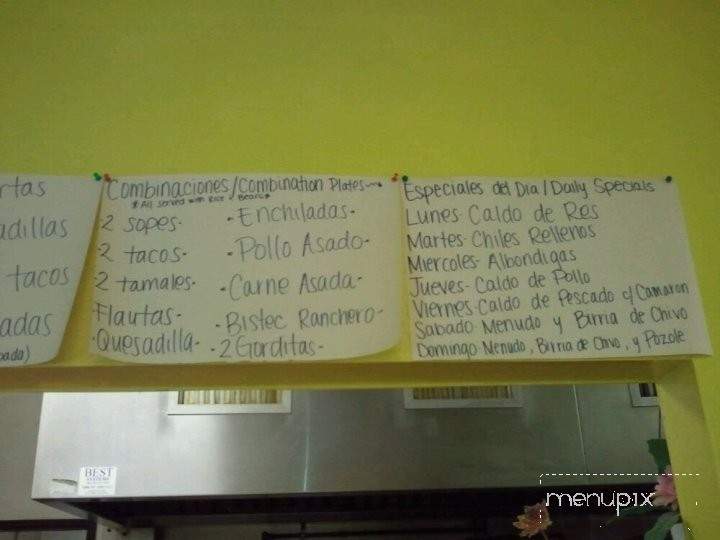 rtas
adillas
tacos
adas
bada)
Combinaciones/Combination Plates
*All served with Rice & Beans*
2 sopes-
2 tacos-
2 tamales-
Flautas-
Quesadilla-
Enchiladas-
Pollo Asado-
Carne Asada-
Bistec Ranchero-
2 Gorditas-
Especiales del Dia/Daily Specials
Lunes- Caldo de Res
Martes- Chiles Rellenos
Miercoles- Albondigas
Jueves- Caldo de Pollo
Viernes- Caldo de Pescado c/ Camaron
Sabado Menudo y Birria de Chivo
Domingo- Menudo, Birria de Chivo, y Pozole
BEST
menupix